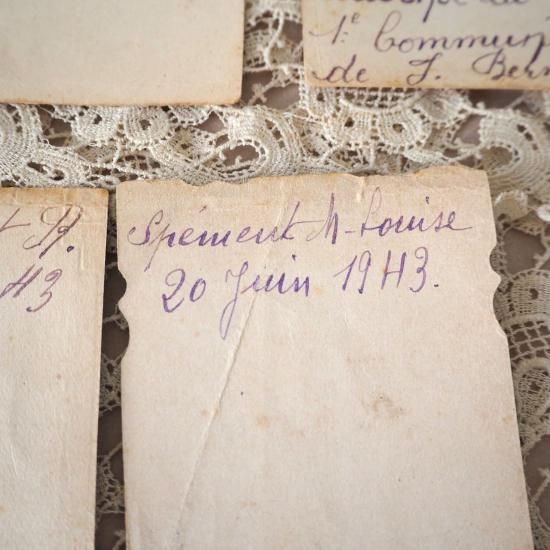 1e Commun
de J. Bern
t R.
43
Spément M-Louise
20 Juin 1943.